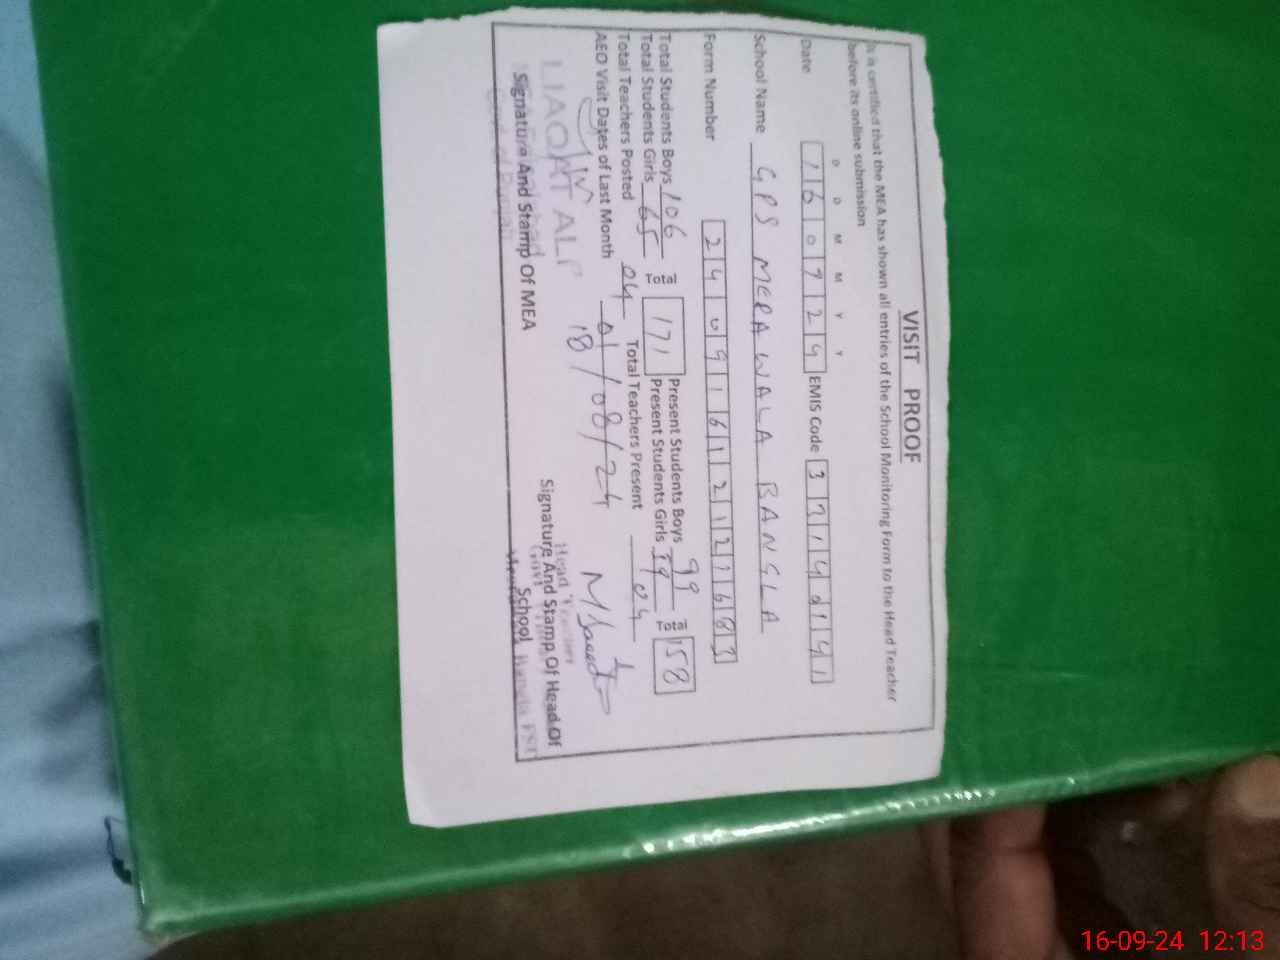 VISIT PROOF
It is certified that the MEA has shown all entries of the School Monitoring Form to the Head Teacher
before its online submission
D D M M Y Y
Date 160924 EMIS Code
School Name GPS MERAWALA BANGLA
Form Number
Total Students Boys 106 Present Students Boys 99
Total Students Girls 65 171 Present Students Girls 59 158
Total Teachers Posted 04 Total Teachers Present 04
AEO Visit Dates of Last Month
18/08/24
LIAQAT ALI
Signature And Stamp Of MEA
Head Teacher
Signature And Stamp Of Head Of
School
16-09-24 12:13